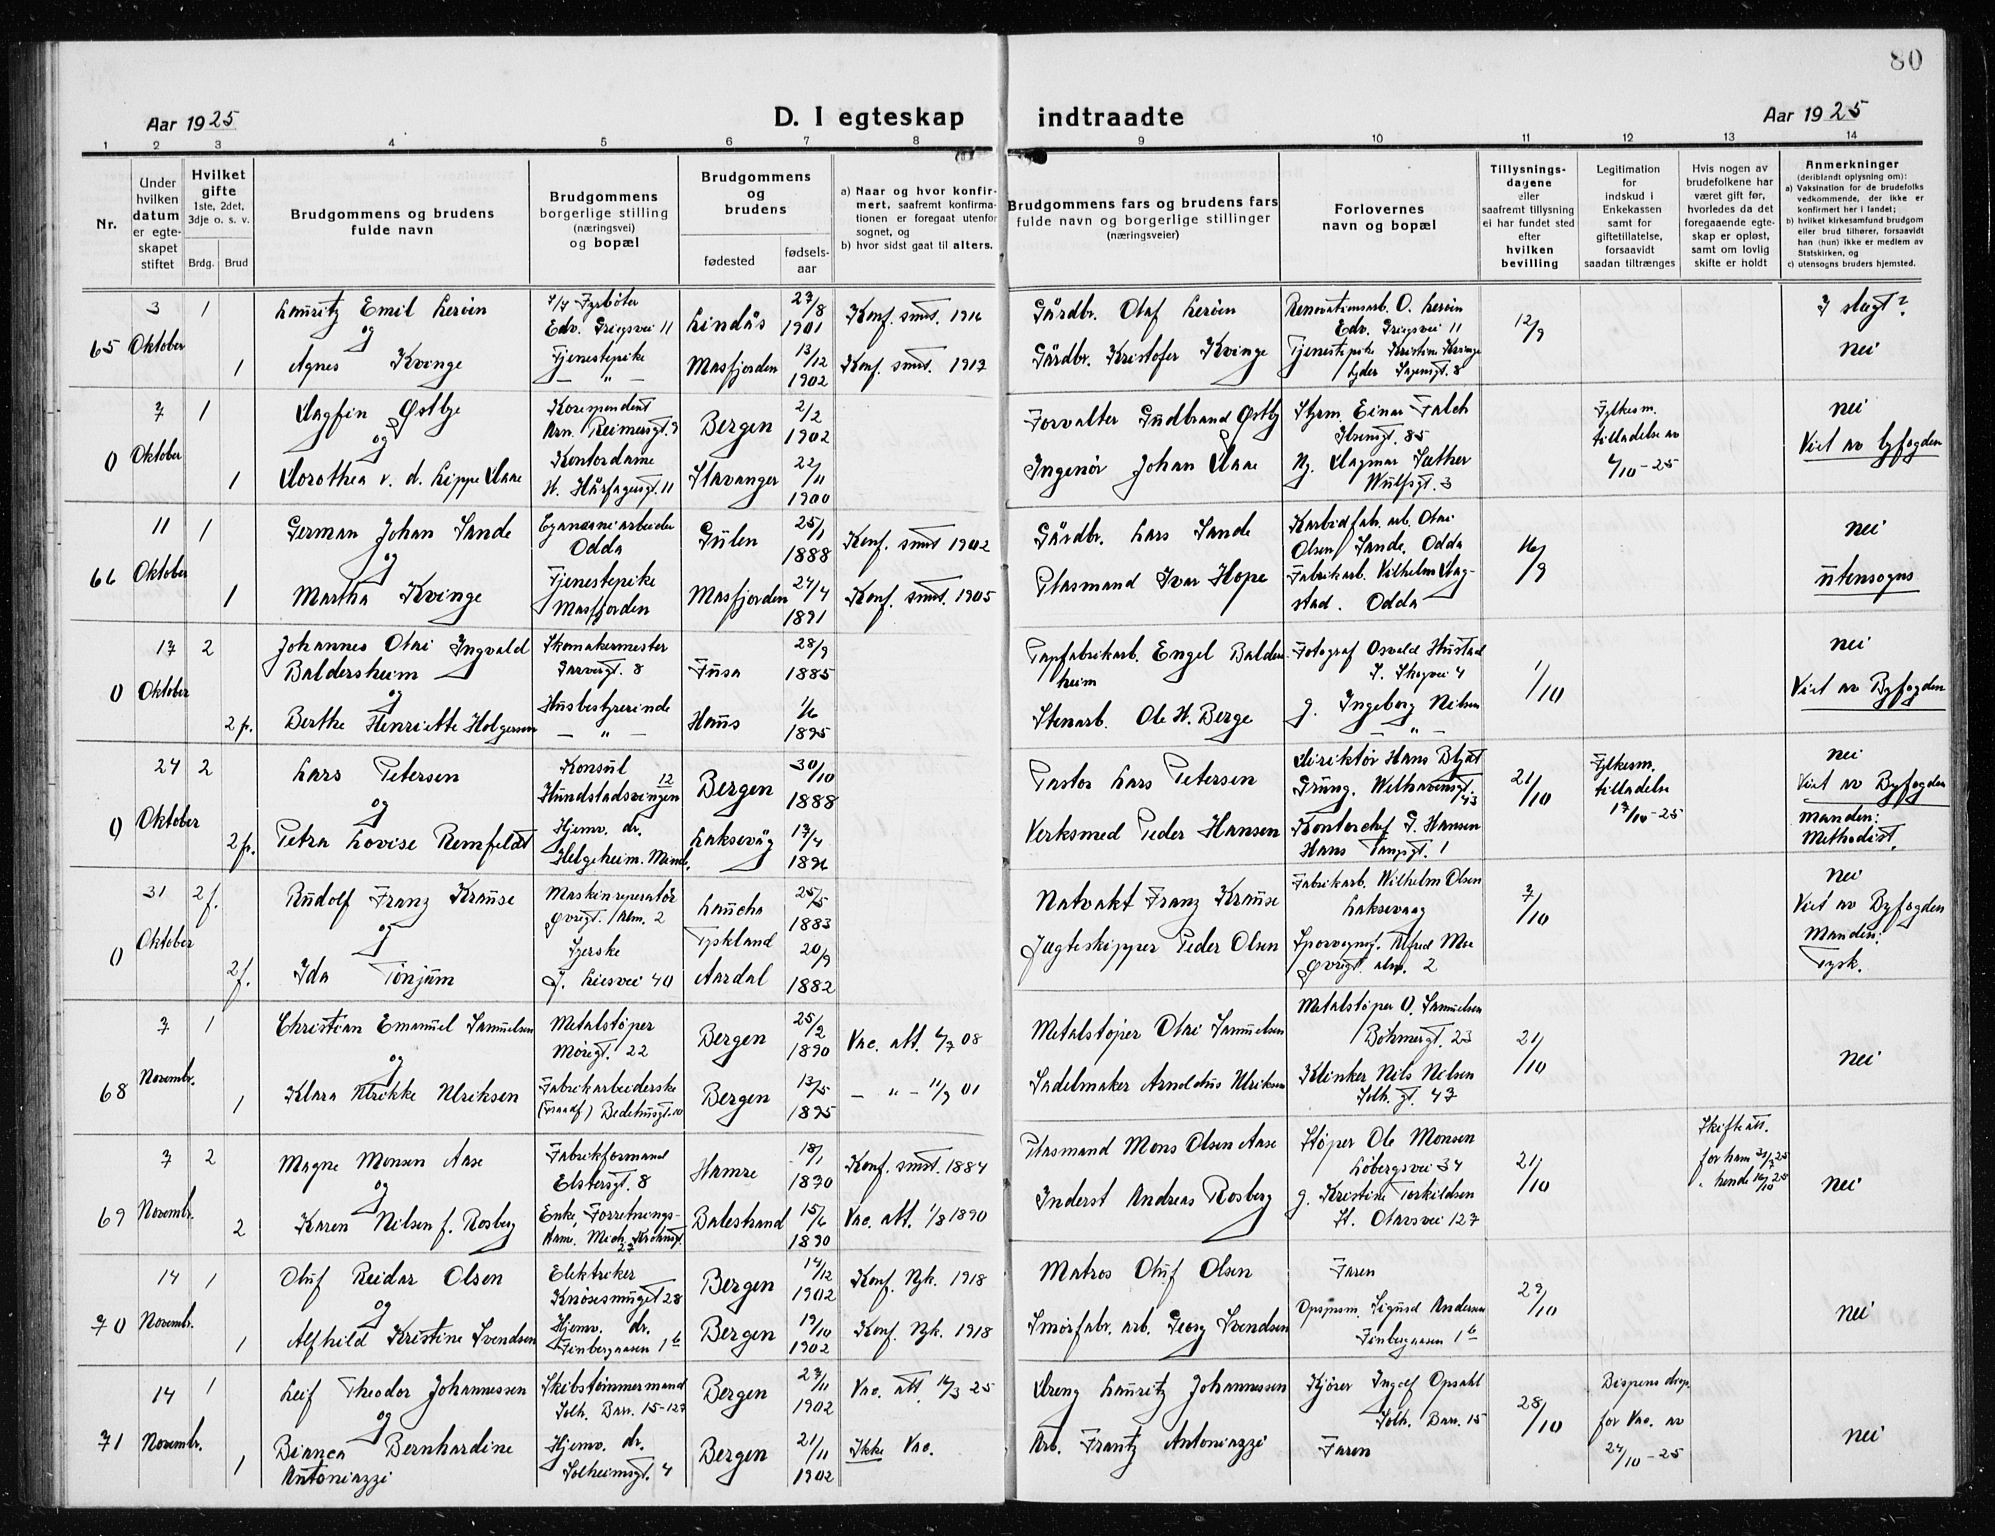 80
Aar 1925
D. I egteskap indtraadte
Aar 1925
1 2 3 4 5 6 7 8 9 10 11 12 13 14
Nr.
Under hvilken datum er egteskapet stiftet
Hvilket gifte 1ste, 2det, 3dje o. s. v.
Brdg. Brud
Brudgommens og brudens fulde navn
Brudgommens borgerlige stilling (næringsvei) og bopæl
Brudgommens og brudens
fødested
fødsels-aar
a) Naar og hvor konfirmert, saafremt konfirmationen er foregaat utenfor sognet, og
b) hvor sidst gaat til alters.
Brudgommens fars og brudens fars fulde navn og borgerlige stillinger (næringsveier)
Forlovernes navn og bopæl
Tillysningsdagene eller saafremt tillysning ei har fundet sted efter hvilken bevilling
Legitimation for indskud i Enkekassen samt for giftetillatelse, forsaavidt saadan tiltrænges
Hvis nogen av brudefolkene har været gift før, hvorledes da det foregaaende egteskap er opløst, samt om lovlig skifte er holdt
Anmerkninger (deriblandt oplysning om):
a) Vaksination for de brudefolks vedkommende, der ikke er konfirmert her i landet;
b) hvilket kirkesamfund brudgom eller brud tilhører, forsaavidt han (hun) ikke er medlem av Statskirken, og
c) utensogns bruders hjemsted.
65 3 Oktober 1 Lauritz Emil Lerøen
Edv. Griegsvei 11 Lindås 27/8 1901 Konf. smst. 1916
Gårdbr. Olaf Lerøen Renovationsarb. O. Lerøen
Edv. Griegsvei 11 12/9 I slægt?
og
1 Agnes Kvinge Tjenestepike
— " — Masfjorden 13/12 1902 Konf. smst. 1917
Gårdbr. Kristofer Kvinge Tjenestepike Kristine Kvinge nei
0 7 Oktober 1 Dagfin Østbye Korespondent
Arn. Reimersgt. 9 Bergen 2/2 1902
Forvalter Gudbrand Østby Styrm. Einar Falch
85 Fylkesm. tilladelse av 6/10-25 nei
Viet av byfogden
og
1 Dorothea v. d. Lippe Daae Kontordame
H. Hårfagersgt. 11 Stavanger 22/11 1900
Ingeniør Johan Daae Dagmar Sæther
Wulfsgt. 3
66 11 Oktober 1 German Johan Sande
Odda Gulen 25/1 1888 Konf. smst 1902
Gårdbr. Lars Sande Karbidfabr. arb. Olai
Olsen Sande. Odda 16/9 nei
og
1 Martha Kvinge Tjenestepike
Masfjorden Masfjorden 24/4 1891 Konf. smst. 1905
Plasmand Ivar Hope Fabrikarb. Vilhelm Dagstad. Odda utensogns
0 17 Oktober 2 Johannes Olai Ingvald
Baldersheim Skomakermester
8 Fusa 28/9 1885
Papfabrikarb. Engel Baldersheim Fotograf Osvald Hustad
J. Skogvei 4 1/10 nei
Viet av Byfogden
og
2 f. Berthe Henriette Holgersen Husbestyrerinde
— " — Haus 1/6 1895
Stenarb. Ole H. Berge g. Ingeborg Nilsen
— " —
0 24 Oktober 2 Lars Petersen Konsul
Hundstadsvingen 12 Bergen 30/10 1888
Pastor Lars Petersen Direktør Hans Blydt
Grung. Welhavensgt. 43 21/10 Fylkesm. tilladelse 17/10-25 nei
Viet av Byfogden
manden: Methodist.
og
2 f. Petra Lovise Remfeldt Hjemv. dr.
Helgeheim. Minde. Laksevåg 17/4
Verksmed Peder Hansen Kontorchef P. Hansen
Hans Tanksgt. 1
0 31 Oktober 2 f. Rudolf Franz Krause Maskinreparatør
Øvregt. Alm. 2 Laucha Tyskland 25/5 1883
Natvakt Franz Krause Fabrikarb. Wilhelm Olsen
Laksevaag 7/10 nei
Viet av Byfogden
Manden: Tysk.
og
2 f. Ida Tønjum Syerske
J. Liesvei 40 Aardal 20/9 1882
Jægteskipper Peder Olsen Sporvognsf. Alfred Moe
Øvregt. alm. 2
68 7 Novembr. 1 Christian Emanuel Samuelsen Metalstøper
Møregt. 22 Bergen 25/2 1890 Vac. att. 6/7 08
Metalstøper Olai Samuelsen Metalstøper O. Samuelsen
Bøhmergt. 23 21/10 nei
og
1 Klara Ulrikke Ulriksen Fabrikarbeiderske
(Traadf) Bedehusgt. 10 Bergen 13/5 1895 — " — 11/9 01
Sadelmaker Arnoldus Ulriksen Klinker Nils Nilsen
Solh. gt. 47
69 7 Novembr. 2 Magne Monsen Aase Fabrikformand
Elstersgt. 8 Hamre 18/1 1870 Konf. smst. 1884
Plasmand Mons Olsen Aase Støper Ole Monsen
Løbergsvei 34 21/10 Skifteatt. for ham 31/7 25
" hende 16/10 25 nei
og
2 Karen Nilsen f. Rosberg Enke, Forretningsdame. Mich. Krohnsgt. 27 Balestrand 15/6 1890 Vac. att. 1/8 1890
Inderst Andreas Rosberg g. Kristine Torkildsen
St. Olavsvei 127
70 14 Novembr. 1 Oluf Reidar Olsen Elektriker
Knøsesmuget 28 Bergen 14/12 1902 Konf. Nyk. 1918
Matros Oluf Olsen Faren 29/10 nei
og
1 Alfhild Kristine Svendsen Hjemv. dr.
Finbergaasen 1b Bergen 19/10 1902 Konf. Nyk. 1918
Smørfabr. arb. Georg Svendsen Opspsm. Sigurd Andersen
Finbergaasen 1b
71 14 Novembr. 1 Leif Theodor Johannessen Skibstømmermand
Solh. Barr. 15-127 Bergen 27/11 1902 Vac. att 14/3 25
Dreng Lauritz Johannessen Kjører Ingolf Opsahl
Solh. Barr. 15 28/10 Bispens disp. for Vac. av 24/10-25 nei
og
1 Bianca Bernhardine
Antoniazzi Hjemv. dr.
Solheimsgt. 4 Bergen 21/11 1902 Ikke Vac.
Arb. Frantz Antoniazzi Faren